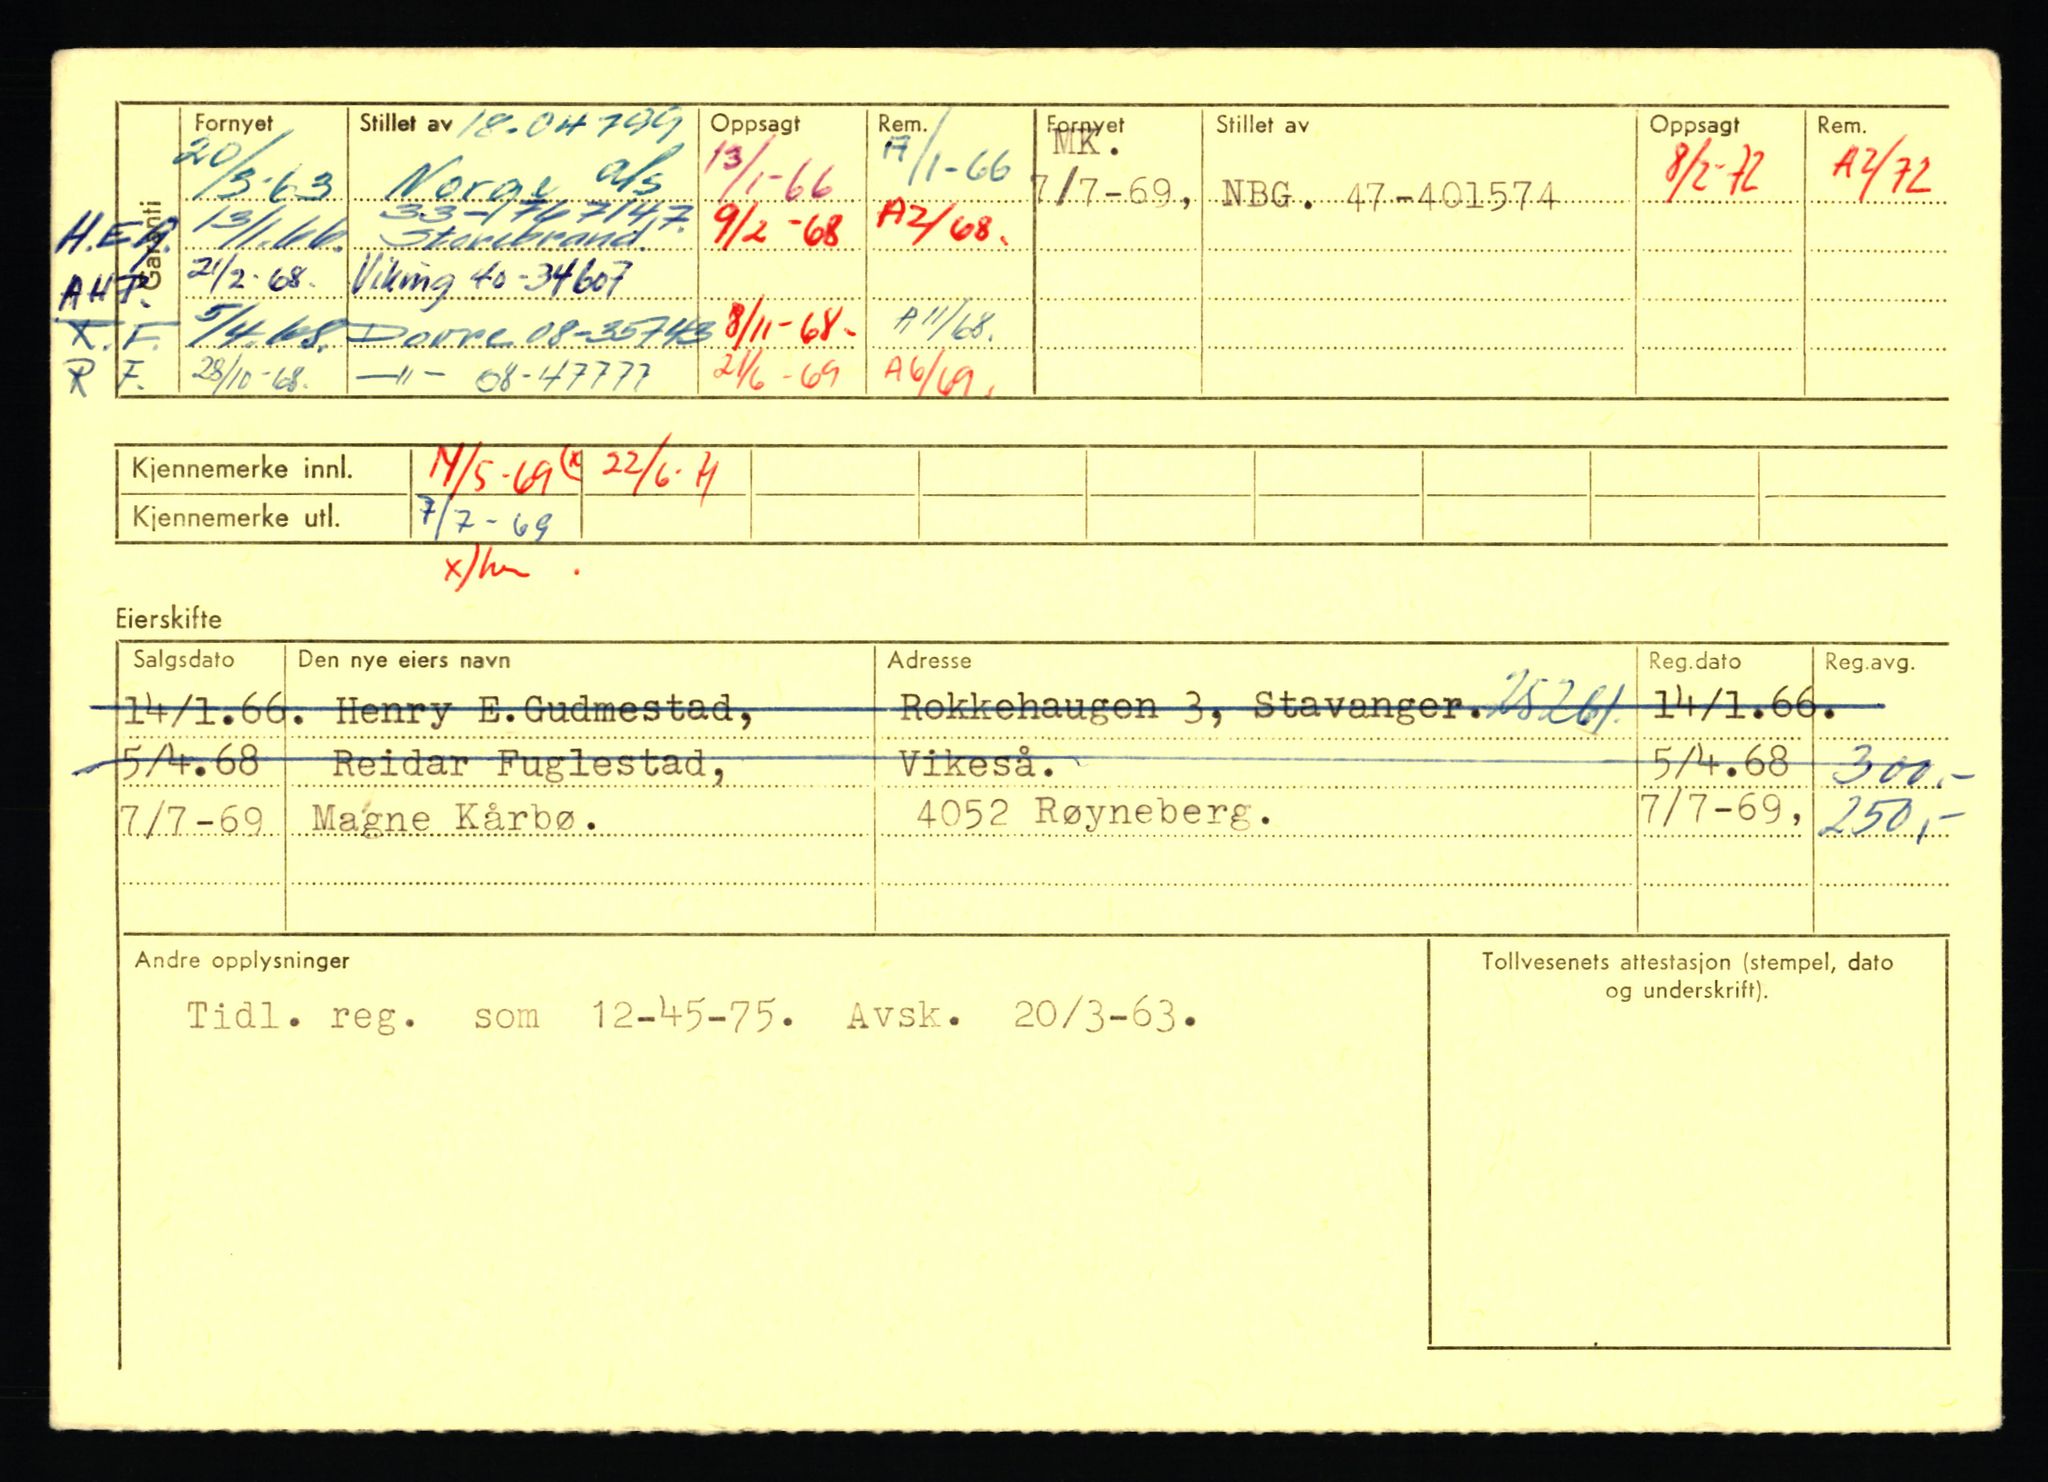 Garanti
Fornyet Stillet av 18-04799 Oppsagt Rem. Fornyet Stillet av Oppsagt Rem.
20/3-63 Norge a/s 13/1-66 A/1-66 MK. 7/7-69, NBG. 47-401574 8/2-72 A2/72
H.E.G. 13/1.66. 33-1767147. Storebrand. 9/2-68 A2/68.
21/2-68. Viking 40-34607
R.F. 5/4.68. Dovre 08-35743 8/11-68- A11/68.
R F. 28/10-68. —"— 08-47777 21/6-69 A6/69.
Kjennemerke innl. 14/5-69 (x 22/6-71
Kjennemerke utl. 7/7-69
x)
Eierskifte
Salgsdato Den nye eiers navn Adresse Reg.dato Reg.avg.
14/1.66. Henry E.Gudmestad, Rokkehaugen 3, Stavanger. 25261. 14/1.66.
5/4.68 Reidar Fuglestad, Vikeså. 5/4.68 300,-
7/7-69 Magne Kårbø. 4052 Røyneberg. 7/7-69, 250,-
Andre opplysninger
Tidl. reg. som 12-45-75. Avsk. 20/3-63.
Tollvesenets attestasjon (stempel, dato
og underskrift).